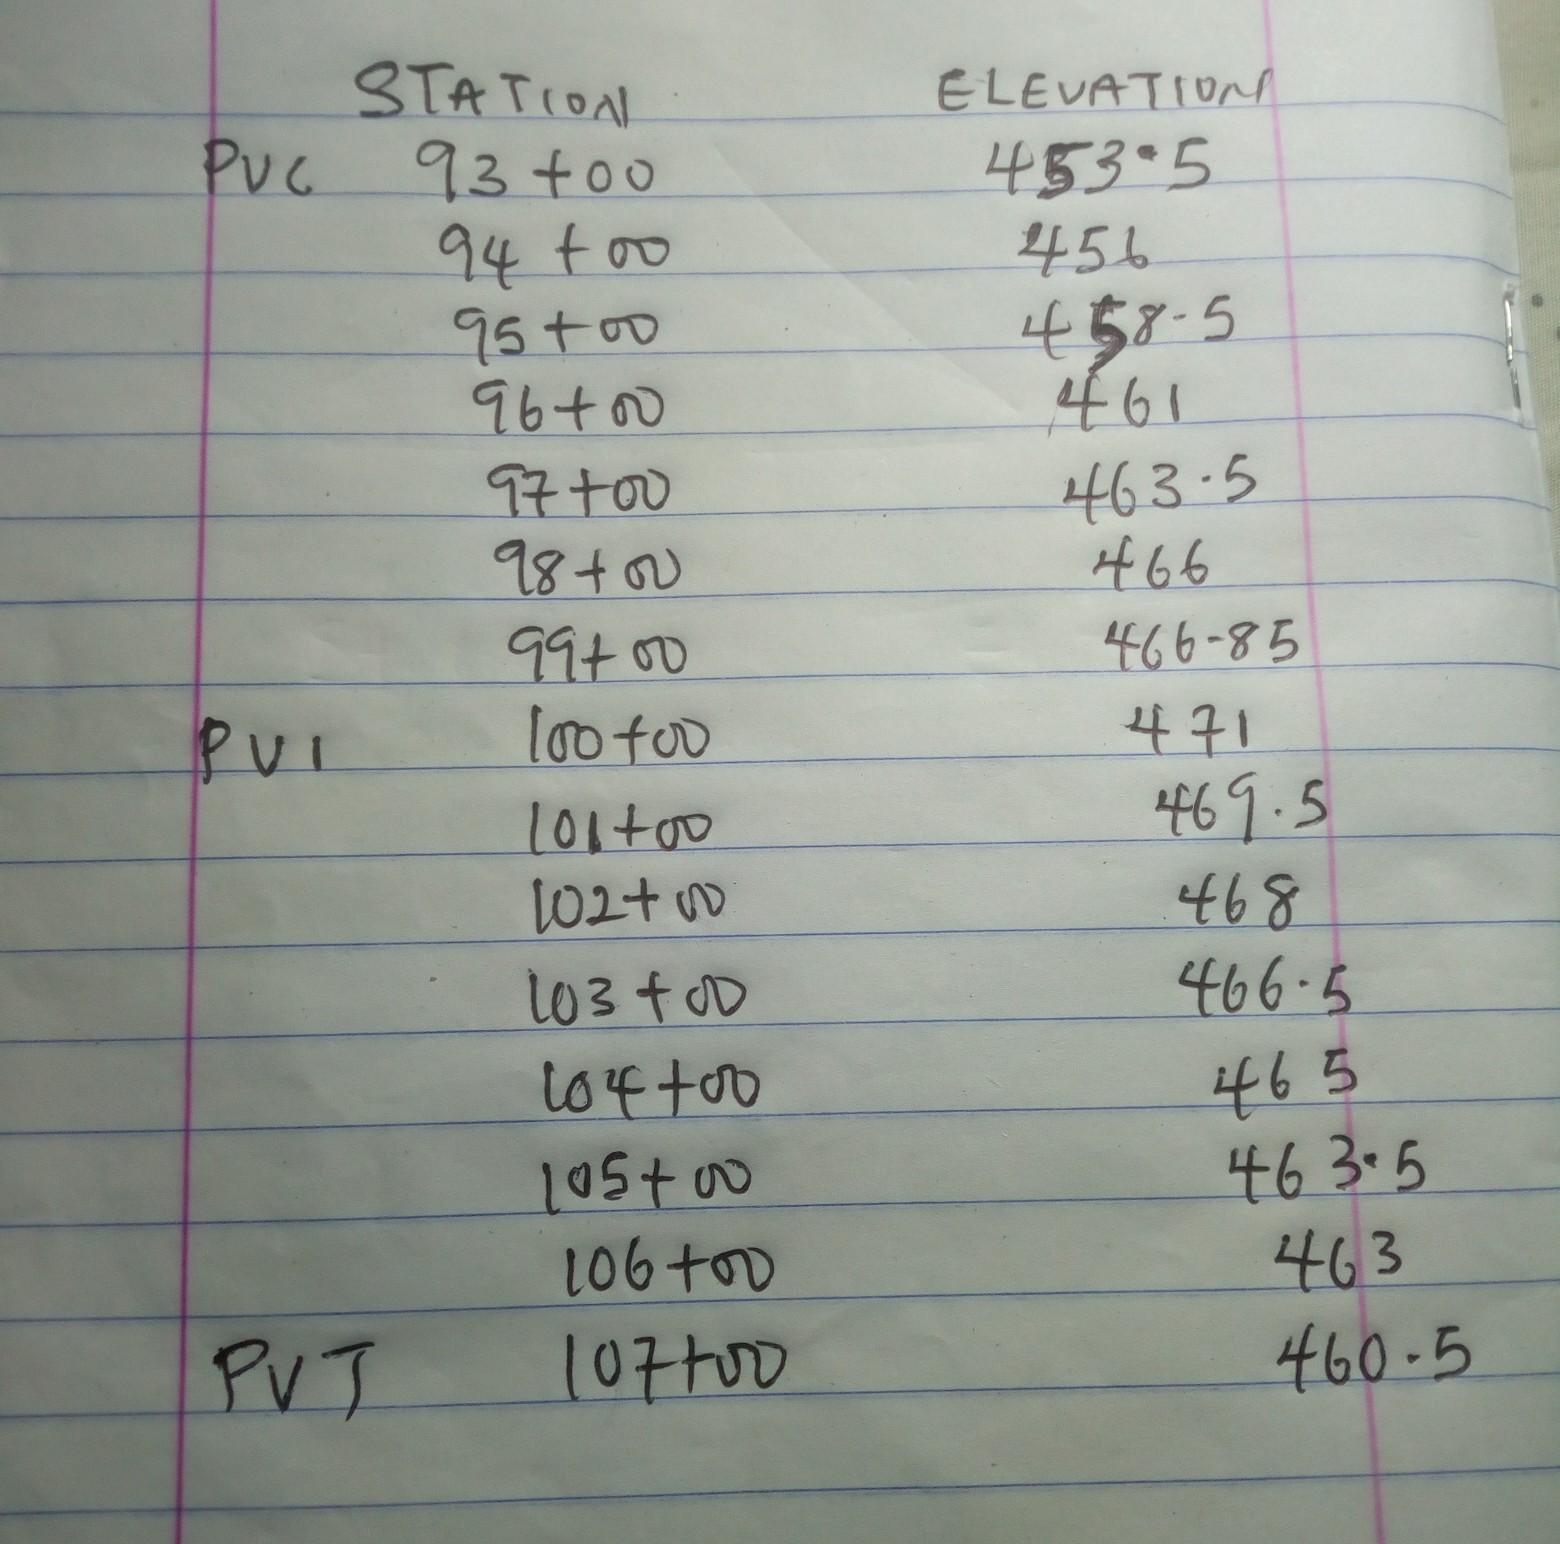 STATION ELEVATION
PVC 93+00 453.5
94+00 456
95+00 458.5
96+00 461
97+00 463.5
98+00 466
99+00 466-85
PVI 100+00 471
101+00 469.5
102+00 468
103+00 466.5
104+00 465
105+00 463.5
106+00 463
PVT 107+00 460.5